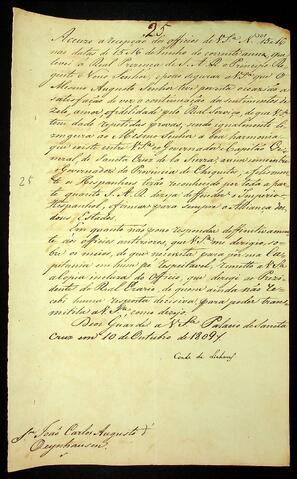 25
Accuso a recepção dos officios de V.S.ª N.ºs 15 e 16
nas datas de 15 e 16 de Junho do corrente anno, que
levei á Real Prezença de S. A. R. o Principe Re-
gente Nosso Senhor, e posso segurar a V.S.ª que O
Mesmo Augusto Senhor teve por esta occazião a
satisfação de ver a continuação dos sentimentos de
zelo, amor, e fidelidade pelo Real Serviço, de que V.S.ª
tem dado repetidas provas, sendo igualmente li-
zongeira ao Mesmo Senhor a boa harmonia
que existe entre V.S.ª e o Governador e Capitão Ge-
neral de Santa Cruz de la Sierra; assim como com
o Governador da Provincia de Chiquitos, e felismen-
te os Hespanhoes terão reconhecido por toda a par-
te quanto S. A. R. dezeja defender o Imperio
Hespanhol, e firmar para sempre a Alliança dos
dous Estados.
25
Em quanto não posso responder definitivamen-
te aos officios anteriores, que V.S.ª me dirigio, so-
bre os meios, de que necessita para pôr essa Ca-
pitania em hum pé respeitavel, remetto a V.S.ª
a copia incluza do Officio, que dirigi ao Prezi-
dente do Real Erario, de quem ainda não re-
cebi huma resposta decisiva, para poder trans-
mittila a V.S.ª como dezejo.
Deos Guarde a V.S.ª Palacio de Santa
Cruz em 10 de Outubro de 1809 //
Conde de Linhares
S.ʳ João Carlos Augusto d'
Oeynhausen.